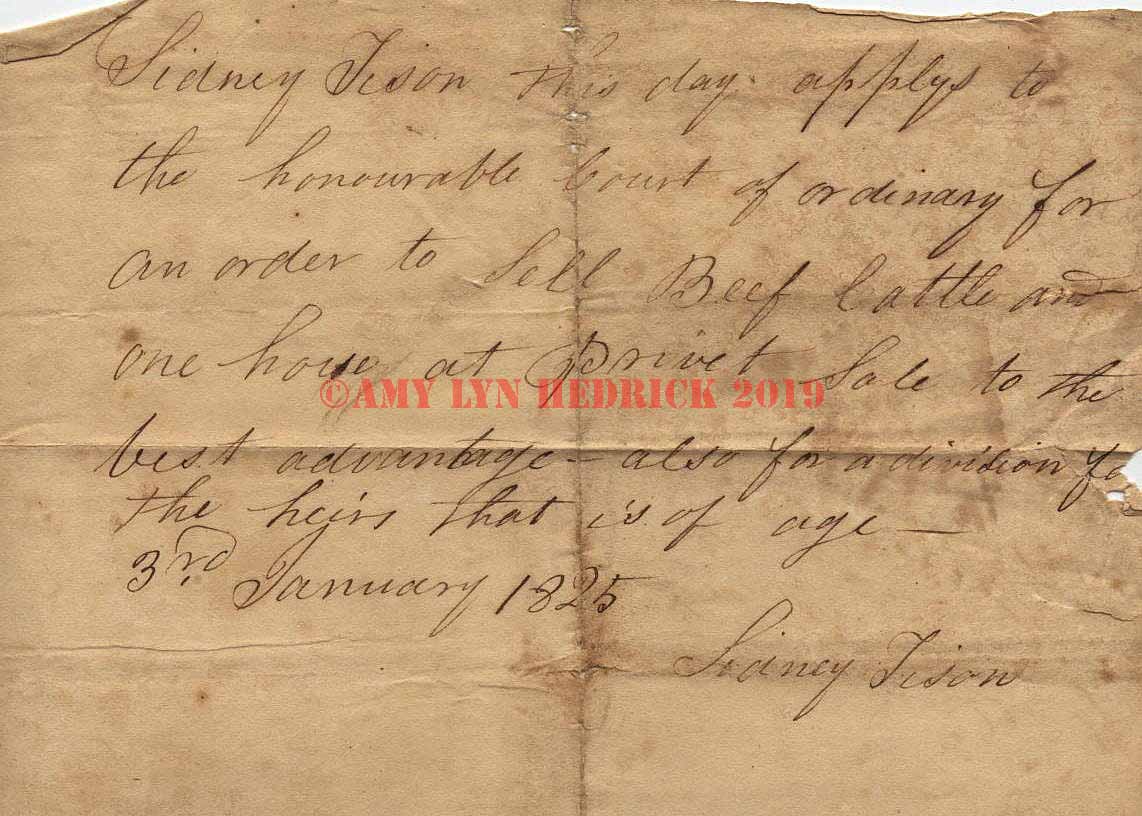 Sidney Tison this day applys to
the honourable Court of ordinary for
an order to Sell Beef Cattle and
one at Privet Sale to the
©AMY LYN HEDRICK 2019
best advantage - also for a division fo
the heirs that is of age -
3rd January 1825
Sidney Tison